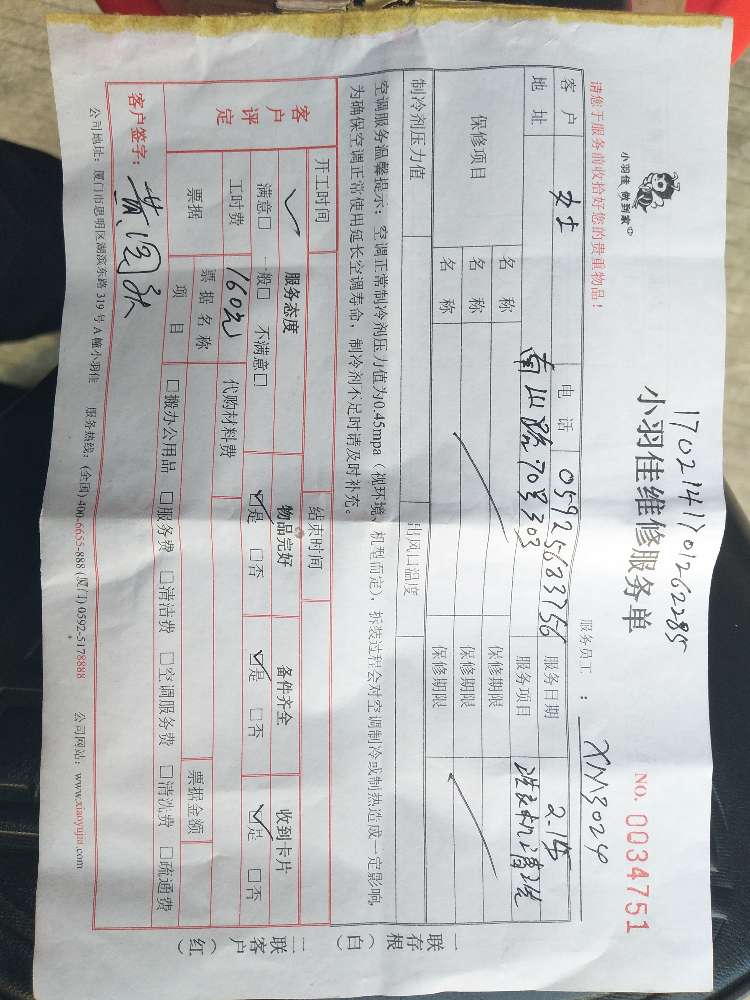 小羽佳 做到家
1702141701262285
小羽佳维修服务单
NO. 0034751
请您于服务前收拾好您的贵重物品！
服务员工：XM3024
客户 女士 电话 05925683756 服务日期 2.15
地址 南山路70号303 服务项目 洗衣机清洗
保修项目 名称 保修期限
名称 保修期限
名称 保修期限
制冷剂压力值 出风口温度
空调服务温馨提示：空调正常制冷剂压力值为0.45mpa（视环境、机型而定），拆装过程会对空调制冷或制热造成一定影响，
为确保空调正常使用延长空调寿命，制冷剂不足时请及时补充。
开工时间 结束时间
客户评定 服务态度 物品完好 备件齐全 收到卡片
满意□ 一般□ 不满意□ ☑是 □否 ☑是 □否 ☑是 □否
工时费 160元 代购材料费
票据 票据名称 票据金额
项目 □搬办公用品 □服务费 □清洁费 □空调服务费 □清洗费 □疏通费
客户签字：
公司地址：厦门市思明区湖滨东路 319 号 A 幢小羽佳 服务热线：(全国) 400-6655-888 (厦门) 0592-5178888 公司网站：www.xiaoyujia.com
一联存根（白）
二联客户（红）